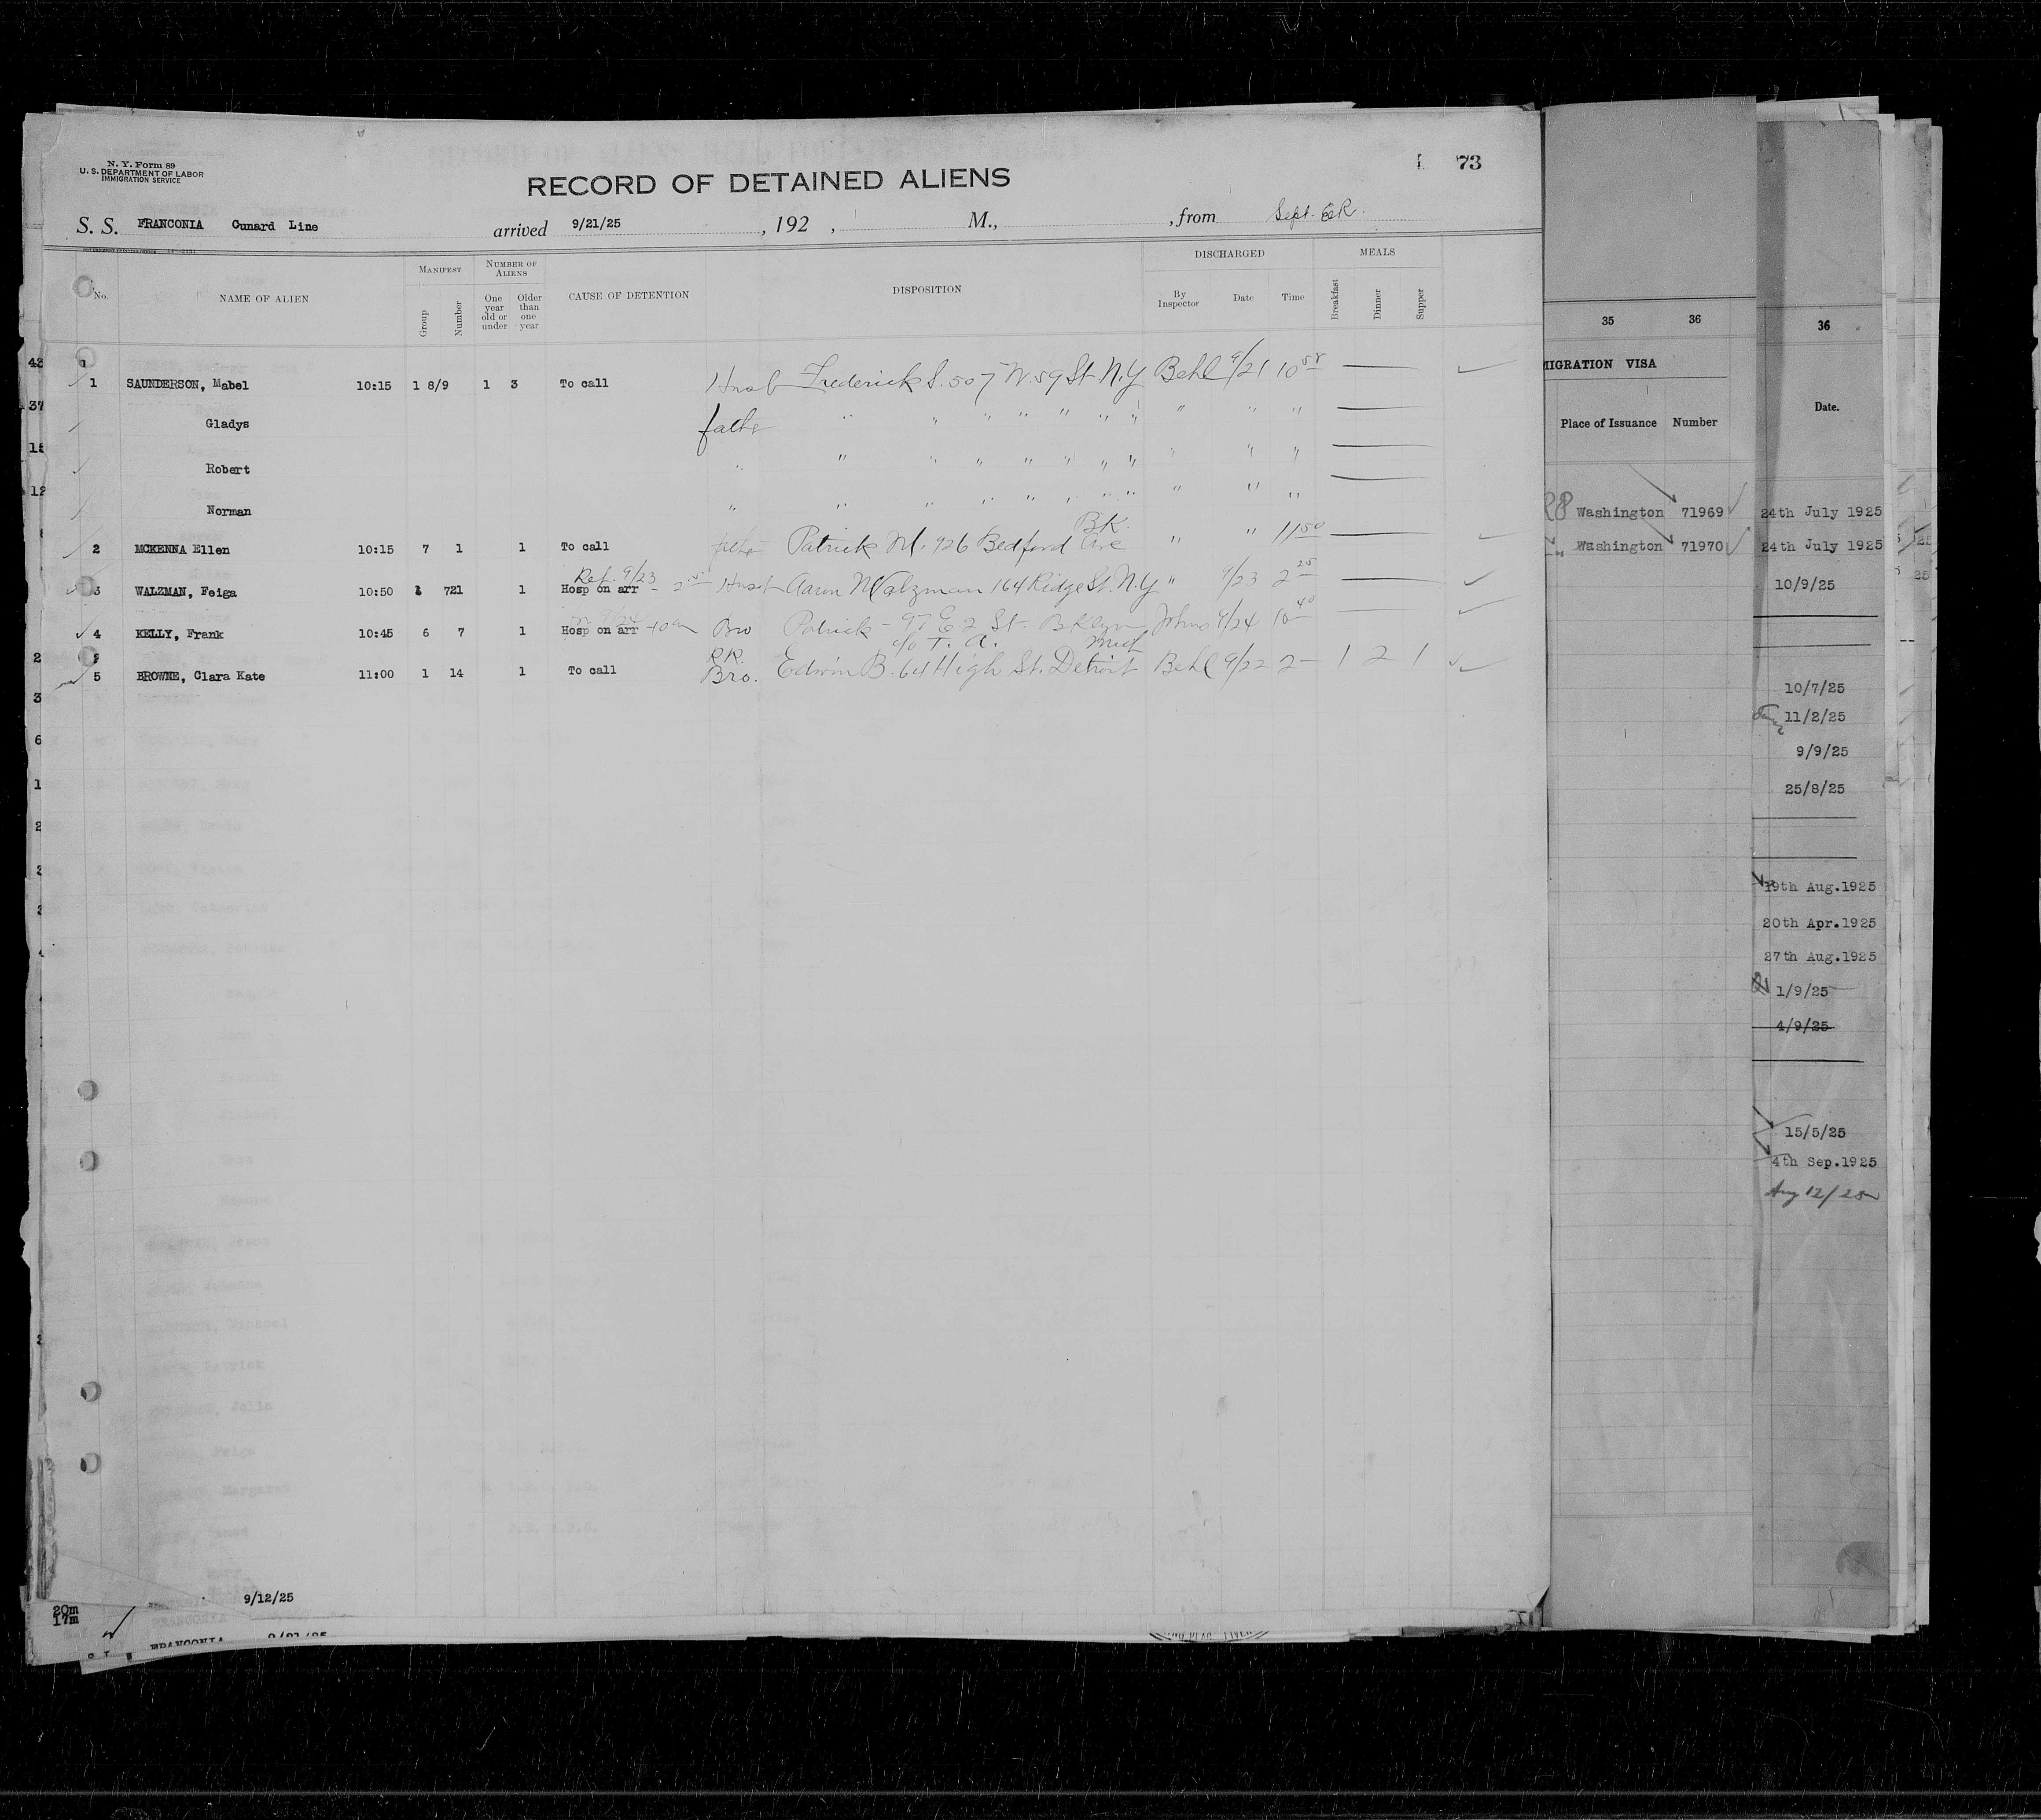 N. Y. Form 89
U. S. DEPARTMENT OF LABOR
IMMIGRATION SERVICE
73
RECORD OF DETAINED ALIENS
S. S. FRANCONIA Cunard Line arrived 9/21/25 , 192 , M., , from Sept.
No. NAME OF ALIEN MANIFEST Group Number NUMBER OF ALIENS One year old or under Older than one year CAUSE OF DETENTION DISPOSITION DISCHARGED By Inspector Date Time MEALS Breakfast Dinner Supper
1 SAUNDERSON, Mabel 10:15 1 8/9 1 3 To call Husb Frederick S. 507 W. 59 St N.Y Behl 9/21 10 58
Gladys father " " " " " " " " " "
Robert " " " " " " " " " " "
Norman " " " " " " " " " " "
BK.
2 MCKENNA Ellen 10:15 7 1 1 To call fathe Patrick M. 926 Bedford Ave " " 11 50
Ret. 9/23
3 WALZMAN, Feiga 10:50 1 721 1 Hosp on arr Husb Aaron Walzman 164 Ridge St. N.Y " 9/23 2 25
4 KELLY, Frank 10:45 6 7 1 Hosp on arr 10 am Bro Patrick - 97 E 2 St. Bklyn Johns 9/24 10 40
RR. c/o T. A. Mich
5 BROWNE, Clara Kate 11:00 1 14 1 To call Bro. Edwin B. 64 High St. Detroit Behl 9/22 2 - 1 2 1
9/12/25
20m
17m
FRANCONIA
FRANCONIA 9/21/25
35 36
MIGRATION VISA
Place of Issuance Number
Washington 71969
Washington 71970
36
Date.
24th July 1925
24th July 1925
10/9/25
10/7/25
11/2/25
9/9/25
25/8/25
19th Aug.1925
20th Apr.1925
27th Aug.1925
1/9/25
4/9/25
15/5/25
4th Sep.1925
Aug 12/25